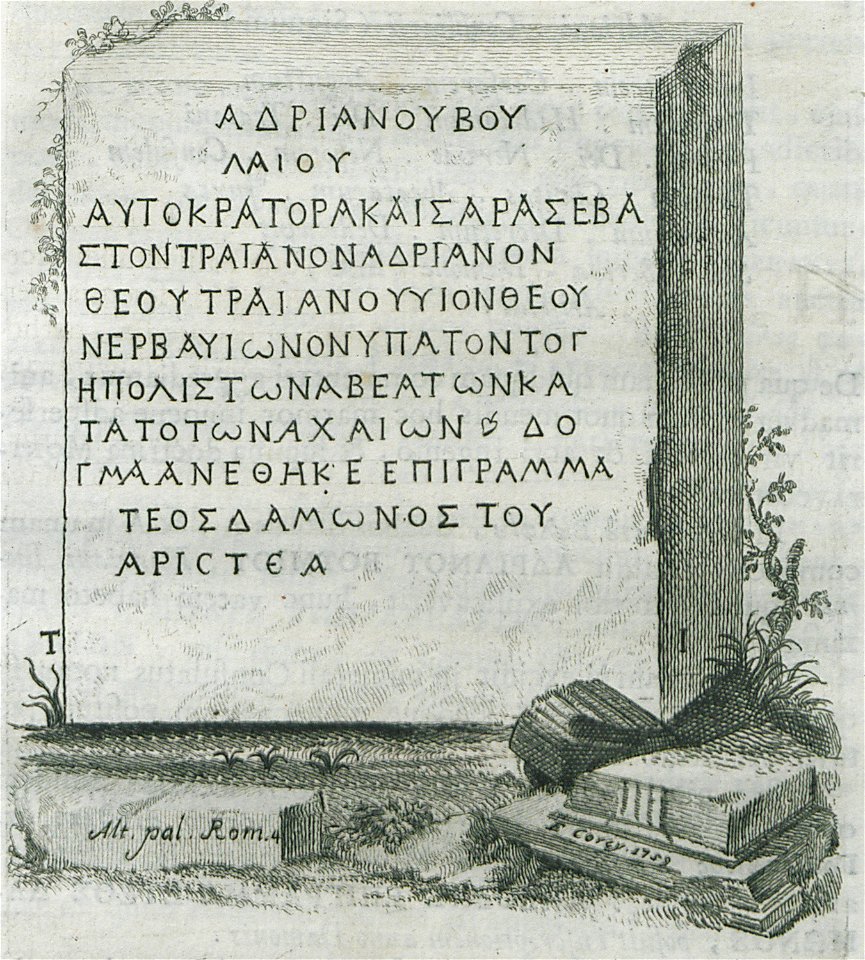 ΑΔΡΙΑΝΟΥΒΟΥ
ΛΑΙΟΥ
ΑΥΤΟΚΡΑΤΟΡΑΚΑΙΣΑΡΑΣΕΒΑ
ΣΤΟΝΤΡΑΙΑΝΟΝΑΔΡΙΑΝΟΝ
ΘΕΟΥΤΡΑΙΑΝΟΥΥΙΟΝΘΕΟΥ
ΝΕΡΒΑΥΙωΝΟΝΥΠΑΤΟΝΤΟΓ
ΗΠΟΛΙΣΤωΝΑΒΕΑΤωΝΚΑ
ΤΑΤΟΤωΝΑΧΑΙωΝ ΔΟ
ΓΜΑΑΝΕΘΗΚΕΕΠΙΓΡΑΜΜΑ
ΤΕΟΣΔΑΜωΝΟΣΤΟΥ
ΑΡΙϹΤЄΑ
T I
Alt. pal. Rom. 4
Corey. 1759